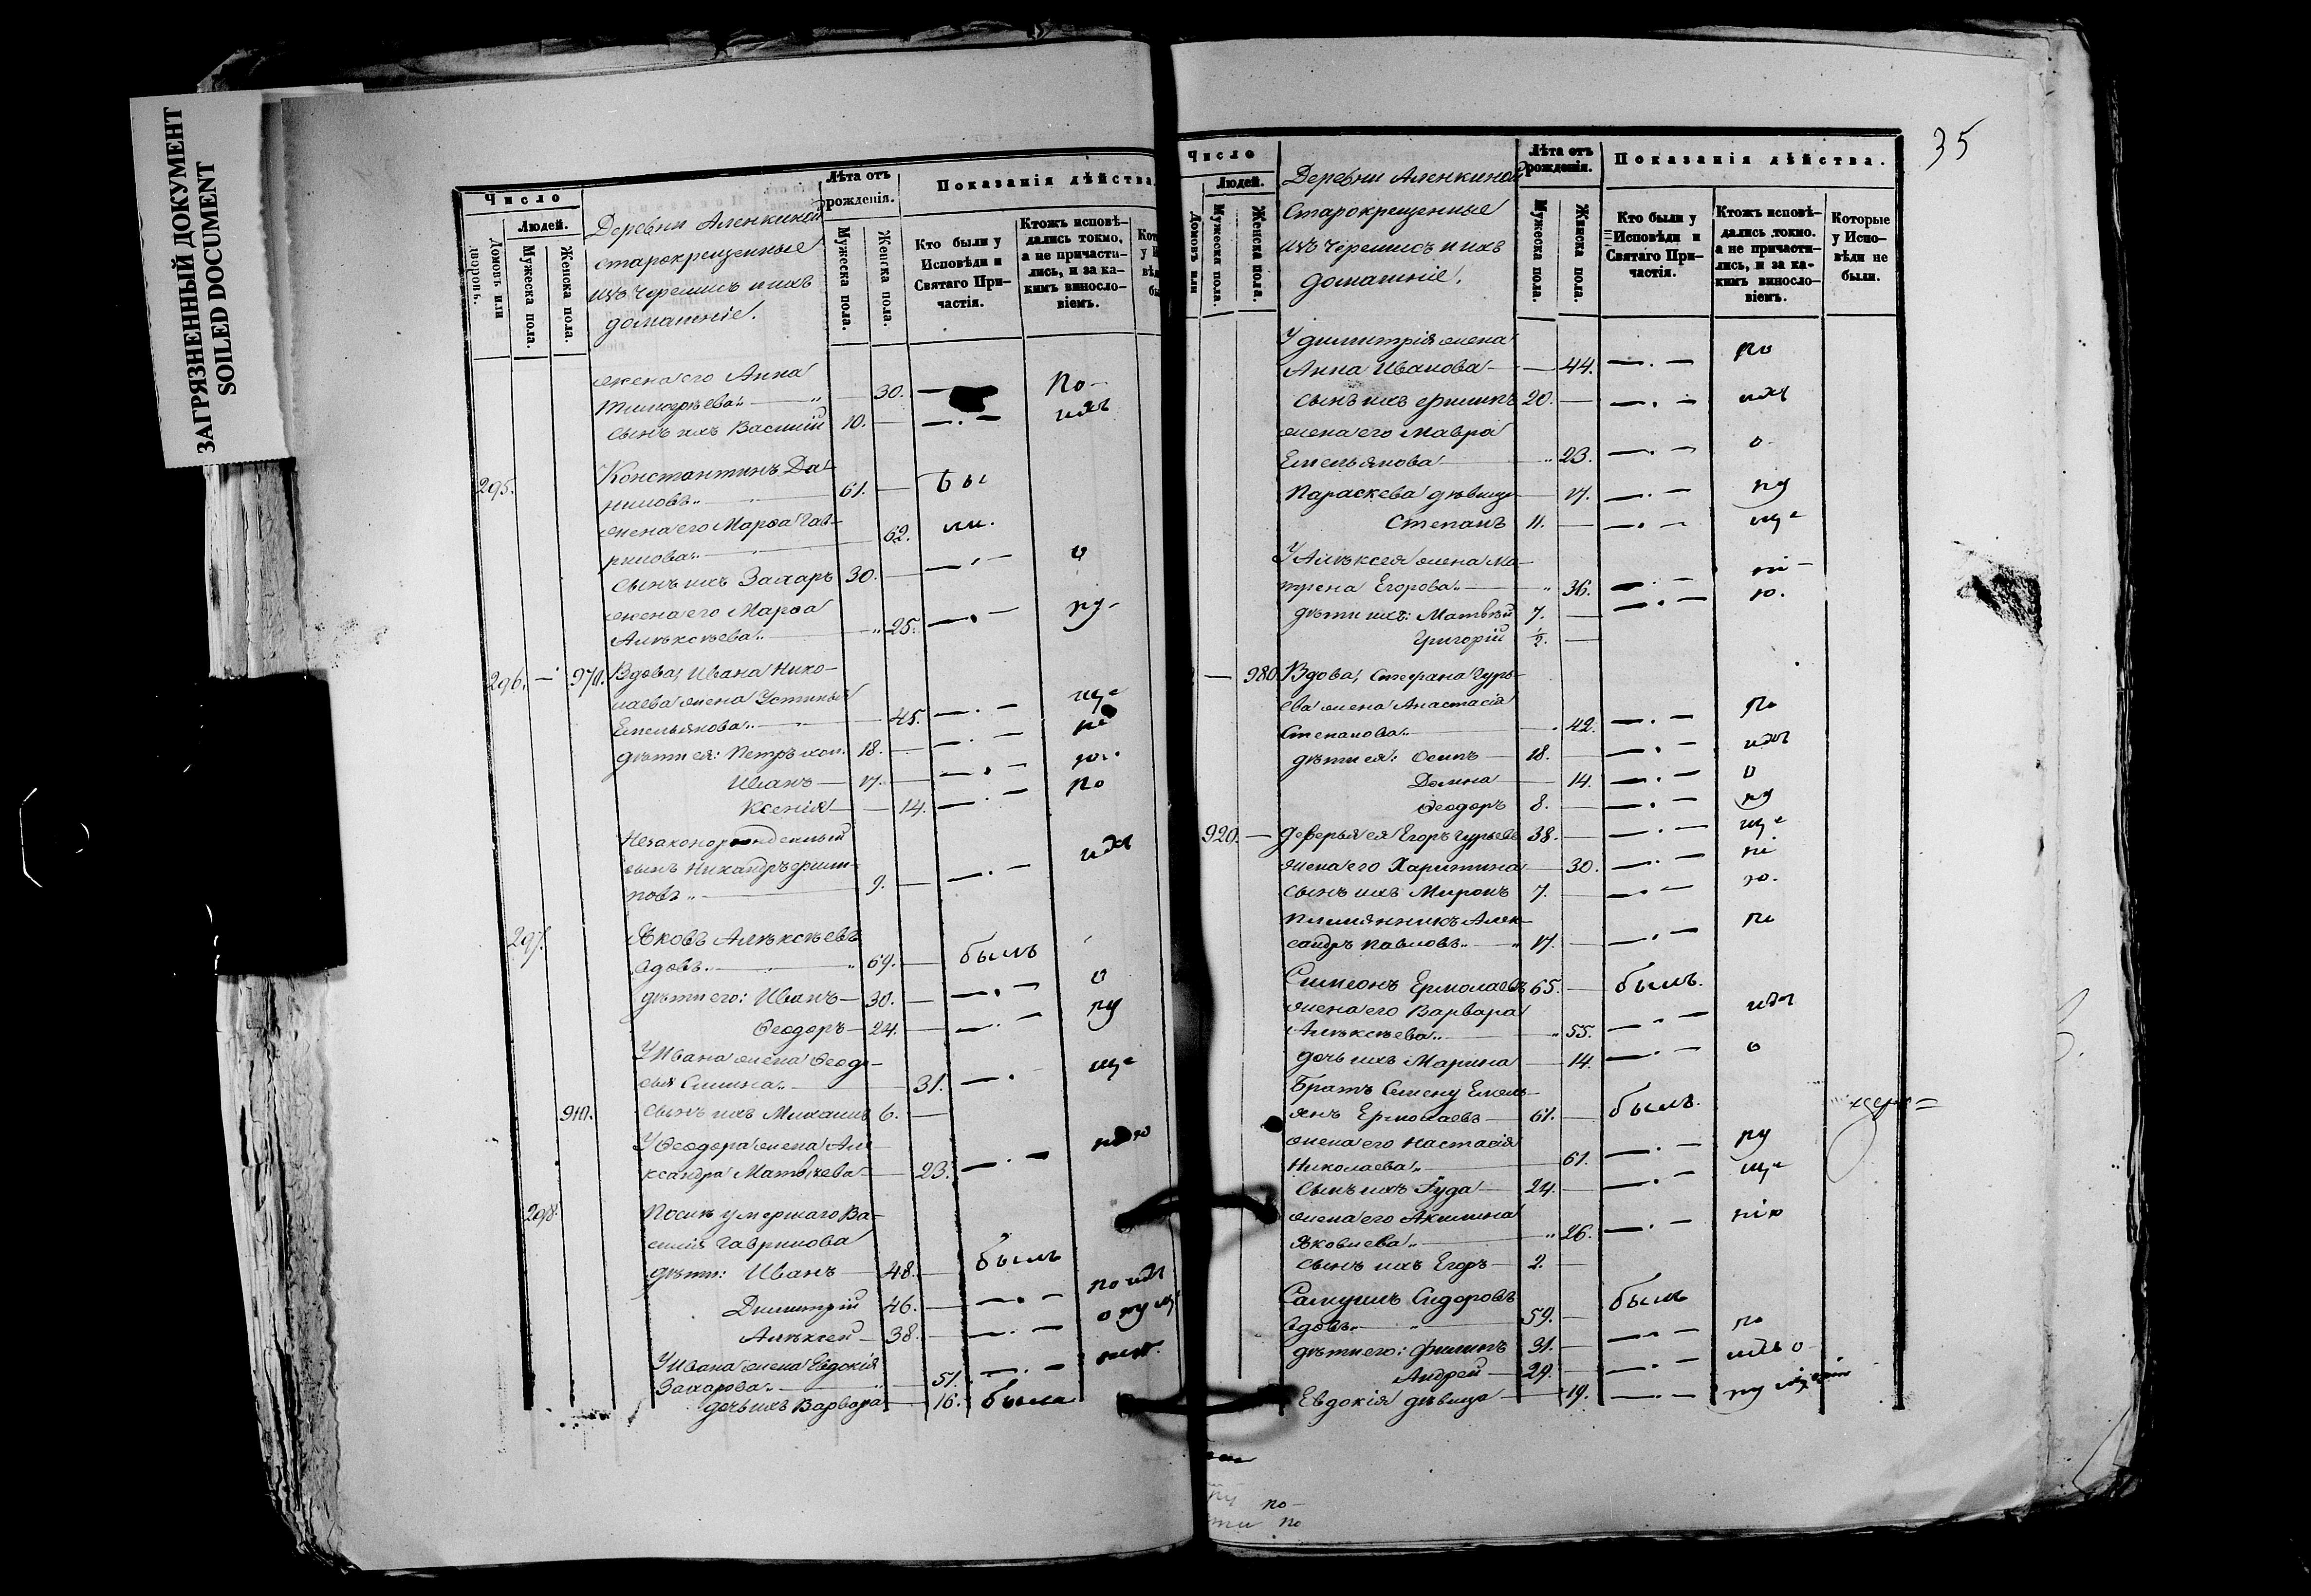 ЗАГРЯЗНЕННЫЙ ДОКУМЕНТ
SOILED DOCUMENT
Число
Людей.
Домовъ или дворовъ.
Мужеска пола.
Женска пола.
Деревни Аленкиной
старокрещенные
изъ черемисъ и ихъ
домашніе.
Лѣта отъ рожденія.
Мужеска пола.
Женска пола.
Показанія дѣйства
Кто были у Исповѣди и Святаго Причастія.
Ктожъ исповѣдались токмо, а не причастились, и за какимъ винословіемъ.
жена его Анна
Тимоѳѣева 30. По-
сынъ ихъ Василий 10.
295. Константинъ Да-
ниловъ 61. бы
жена его Марѳа Гав-
рилова 62. ли.
сынъ ихъ Захаръ 30. о
жена его Марѳа
Алѣксѣева 25. ру-
296. 970. Вдова, Ивана Нико-
лаева жена Устинья
Емельянова 45.
дѣти ея: Петръ хол. 18.
Иванъ 17.
Ксенія 14. по
Незаконорожденный
сынъ Никандръ Филип-
повъ 9.
297. Яковъ Алѣксѣевъ
вдовъ 69. былъ
дѣти его: Иванъ 30. о
Ѳеодоръ 24. ру
У Ивана жена Ѳеодо-
сья Симина 31.
910. сынъ ихъ Михаилъ 6.
У Ѳеодора жена Але-
ксандра Матвѣева 23.
298. Послѣ умершаго Ва-
силія Гаврилова
дѣти: Иванъ 48. былъ
Димитрій 46.
Алѣксей 38.
У Ивана жена Евдокія
Захарова 51.
дочь ихъ Варвара 16. была
35
Число
Людей.
Домовъ или
Мужеска пола.
Женска пола.
Деревни Аленкиной
Старокрещенные
изъ черемисъ и ихъ
домашніе.
Лѣта отъ рожденія.
Мужеска пола.
Женска пола.
Показанія дѣйства.
Кто были у Исповѣди и Святаго Причастія.
Ктожъ исповѣдались токмо, а не причастились, и за какимъ винословіемъ.
Которые у Исповѣди не были.
У Димитрія жена
Анна Иванова 44. по
сынъ ихъ Филипъ 20.
жена его Мавра
Емельянова 23. о
Параскева дѣвица 17. ру
Степанъ 11.
У Алѣксея жена Ма-
трена Егорова 36.
дѣти ихъ: Матвѣй 7. ю.
Григорій ½.
980. Вдова, Стефана Гурь-
ева жена Анастасія
Степанова 42. По
дѣти ея: Осипъ 18.
Домна 14. о
Ѳеодоръ 8. ру
920. деверья ея Егоръ Гурьевъ 38.
жена его Харитина 30.
сынъ ихъ Миронъ 7. ю.
племянникъ Алек-
сандръ Павловъ 17. по
Симеонъ Ермолаевъ 65. былъ.
жена его Варвара
Алѣксѣева 55.
дочь ихъ Марина 14. о
Братъ Семену Емель-
янъ Ермолаевъ 61. былъ.
жена его Настасія
Николаева 61. ру
сынъ ихъ Іуда 24.
жена его Акилина
Яковлева 26.
сынъ ихъ Егоръ 2.
Самуилъ Сидоровъ
вдовъ 59. былъ
дѣти его: Филипъ 31. по
Андрей 29.
Евдокія дѣвица 19. ру
по
по